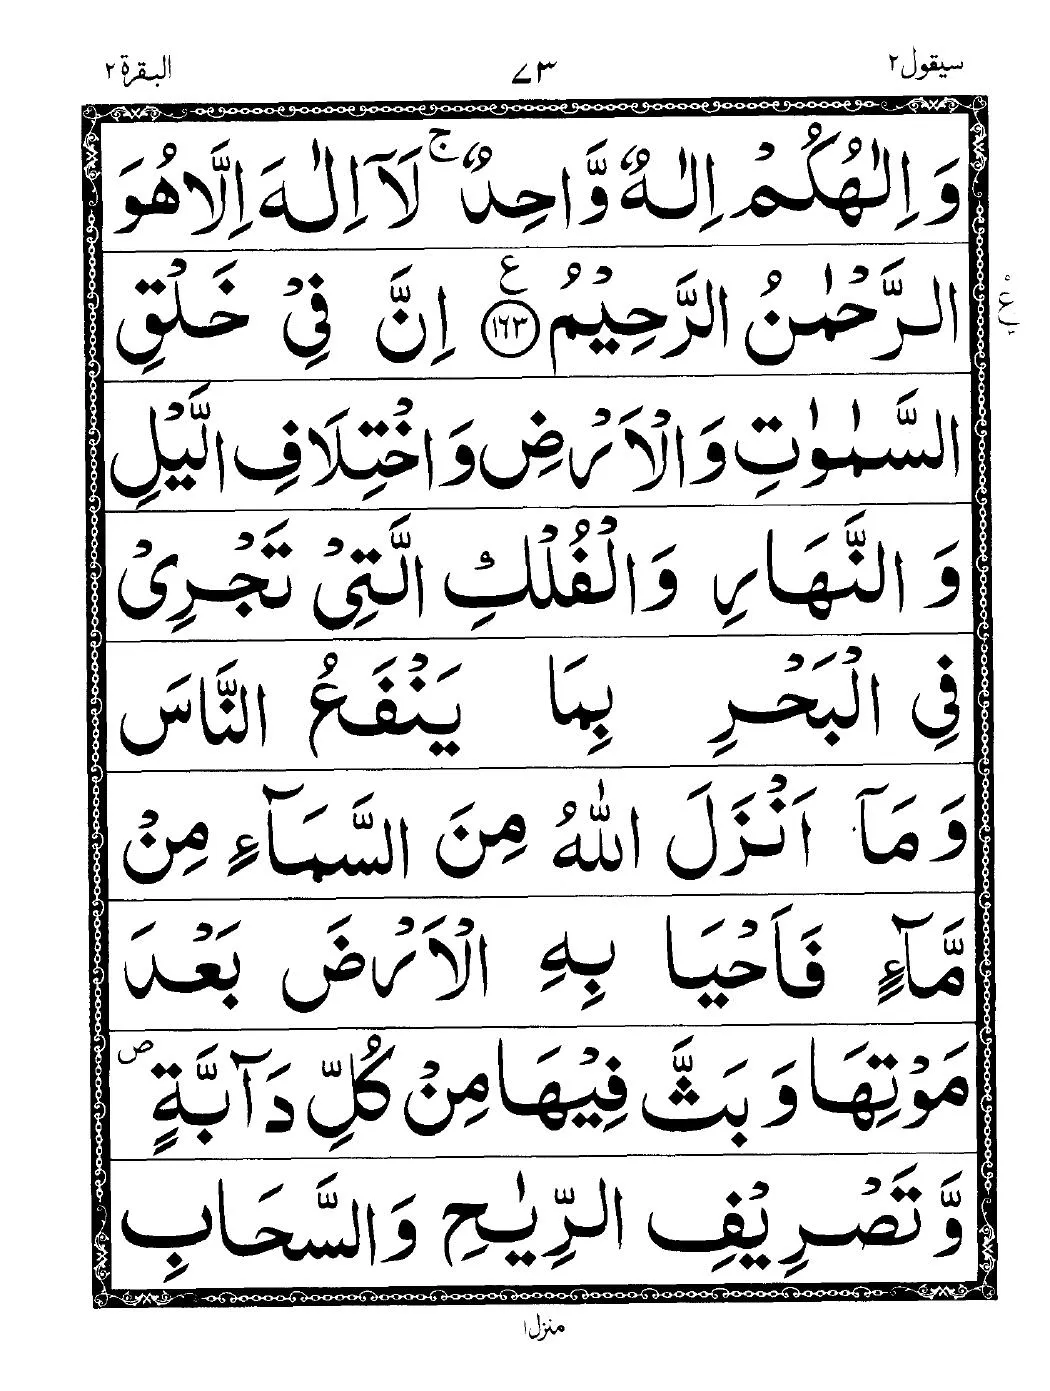 سيقول ٢ ٧٣ البقرة ٢
وَ اِلٰهُكُمْ اِلٰهٌ وَّاحِدٌ ۚ لَاۤ اِلٰهَ اِلَّا هُوَ
الرَّحْمٰنُ الرَّحِيْمُ ﴿١٦٣﴾ ع اِنَّ فِيْ خَلْقِ
السَّمٰوٰتِ وَ الْاَرْضِ وَ اخْتِلَافِ الَّيْلِ
وَ النَّهَارِ وَ الْفُلْكِ الَّتِيْ تَجْرِيْ
فِي الْبَحْرِ بِمَا يَنْفَعُ النَّاسَ
وَ مَاۤ اَنْزَلَ اللّٰهُ مِنَ السَّمَآءِ مِنْ
مَّآءٍ فَاَحْيَا بِهِ الْاَرْضَ بَعْدَ
مَوْتِهَا وَ بَثَّ فِيْهَا مِنْ كُلِّ دَآبَّةٍ ص
وَّ تَصْرِيْفِ الرِّيٰحِ وَ السَّحَابِ
منزل ١